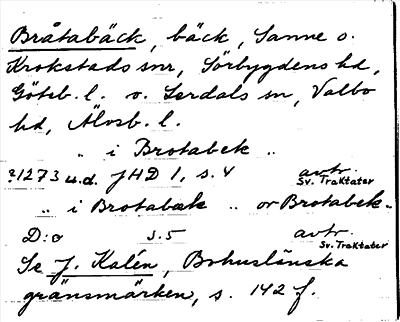 Bråtabäck, bäck, Sanne o.
Krokstads snr, Sörbygdens hd,
Göteb. l. o. Lerdals sn, Valbo
hd, Älvsb. l.
„ i Brotabek „
?1273 u.d. JHD 1, s. 4 avtr. Sv. Traktater
„ i Brotabæk „ or Brotabek„
D:o s. 5 avtr. Sv. Traktater
Se J. Kalén, Bohuslänska
gränsmärken, s. 142 f.